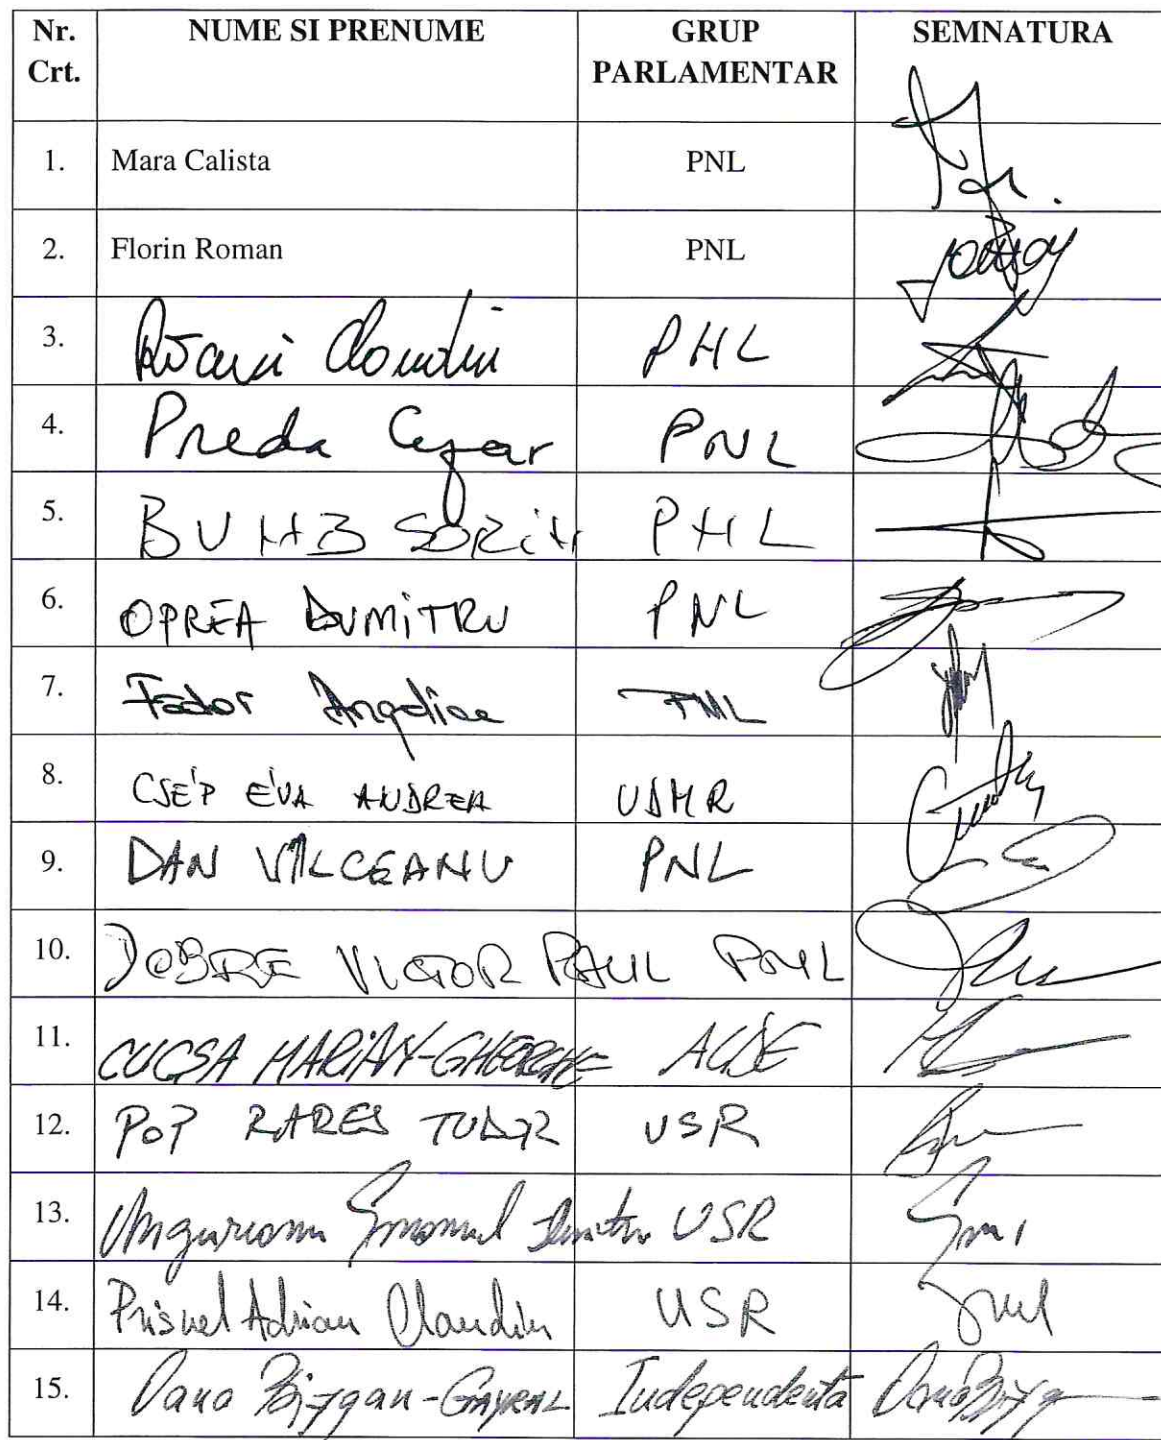 Nr. Crt. NUME SI PRENUME GRUP PARLAMENTAR SEMNATURA
1. Mara Calista PNL
2. Florin Roman PNL
3. PNL
4. Preda Cezar PNL
5. PNL
6. OPREA DUMITRU PNL
7. Fador Angelica PNL
8. CSÉP ÉVA ANDREA UDMR
9. DAN VÎLCEANU PNL
10. DOBRE VICTOR PAUL PNL
11. CUCSA MARIAN-GHEORGHE ALDE
12. POP RARES TUDOR USR
13. Ungureanu Emanuel Dumitru USR
14. Prisnel Adrian Claudiu USR
15. Oana Bîzgan-GAYRAL Independenta